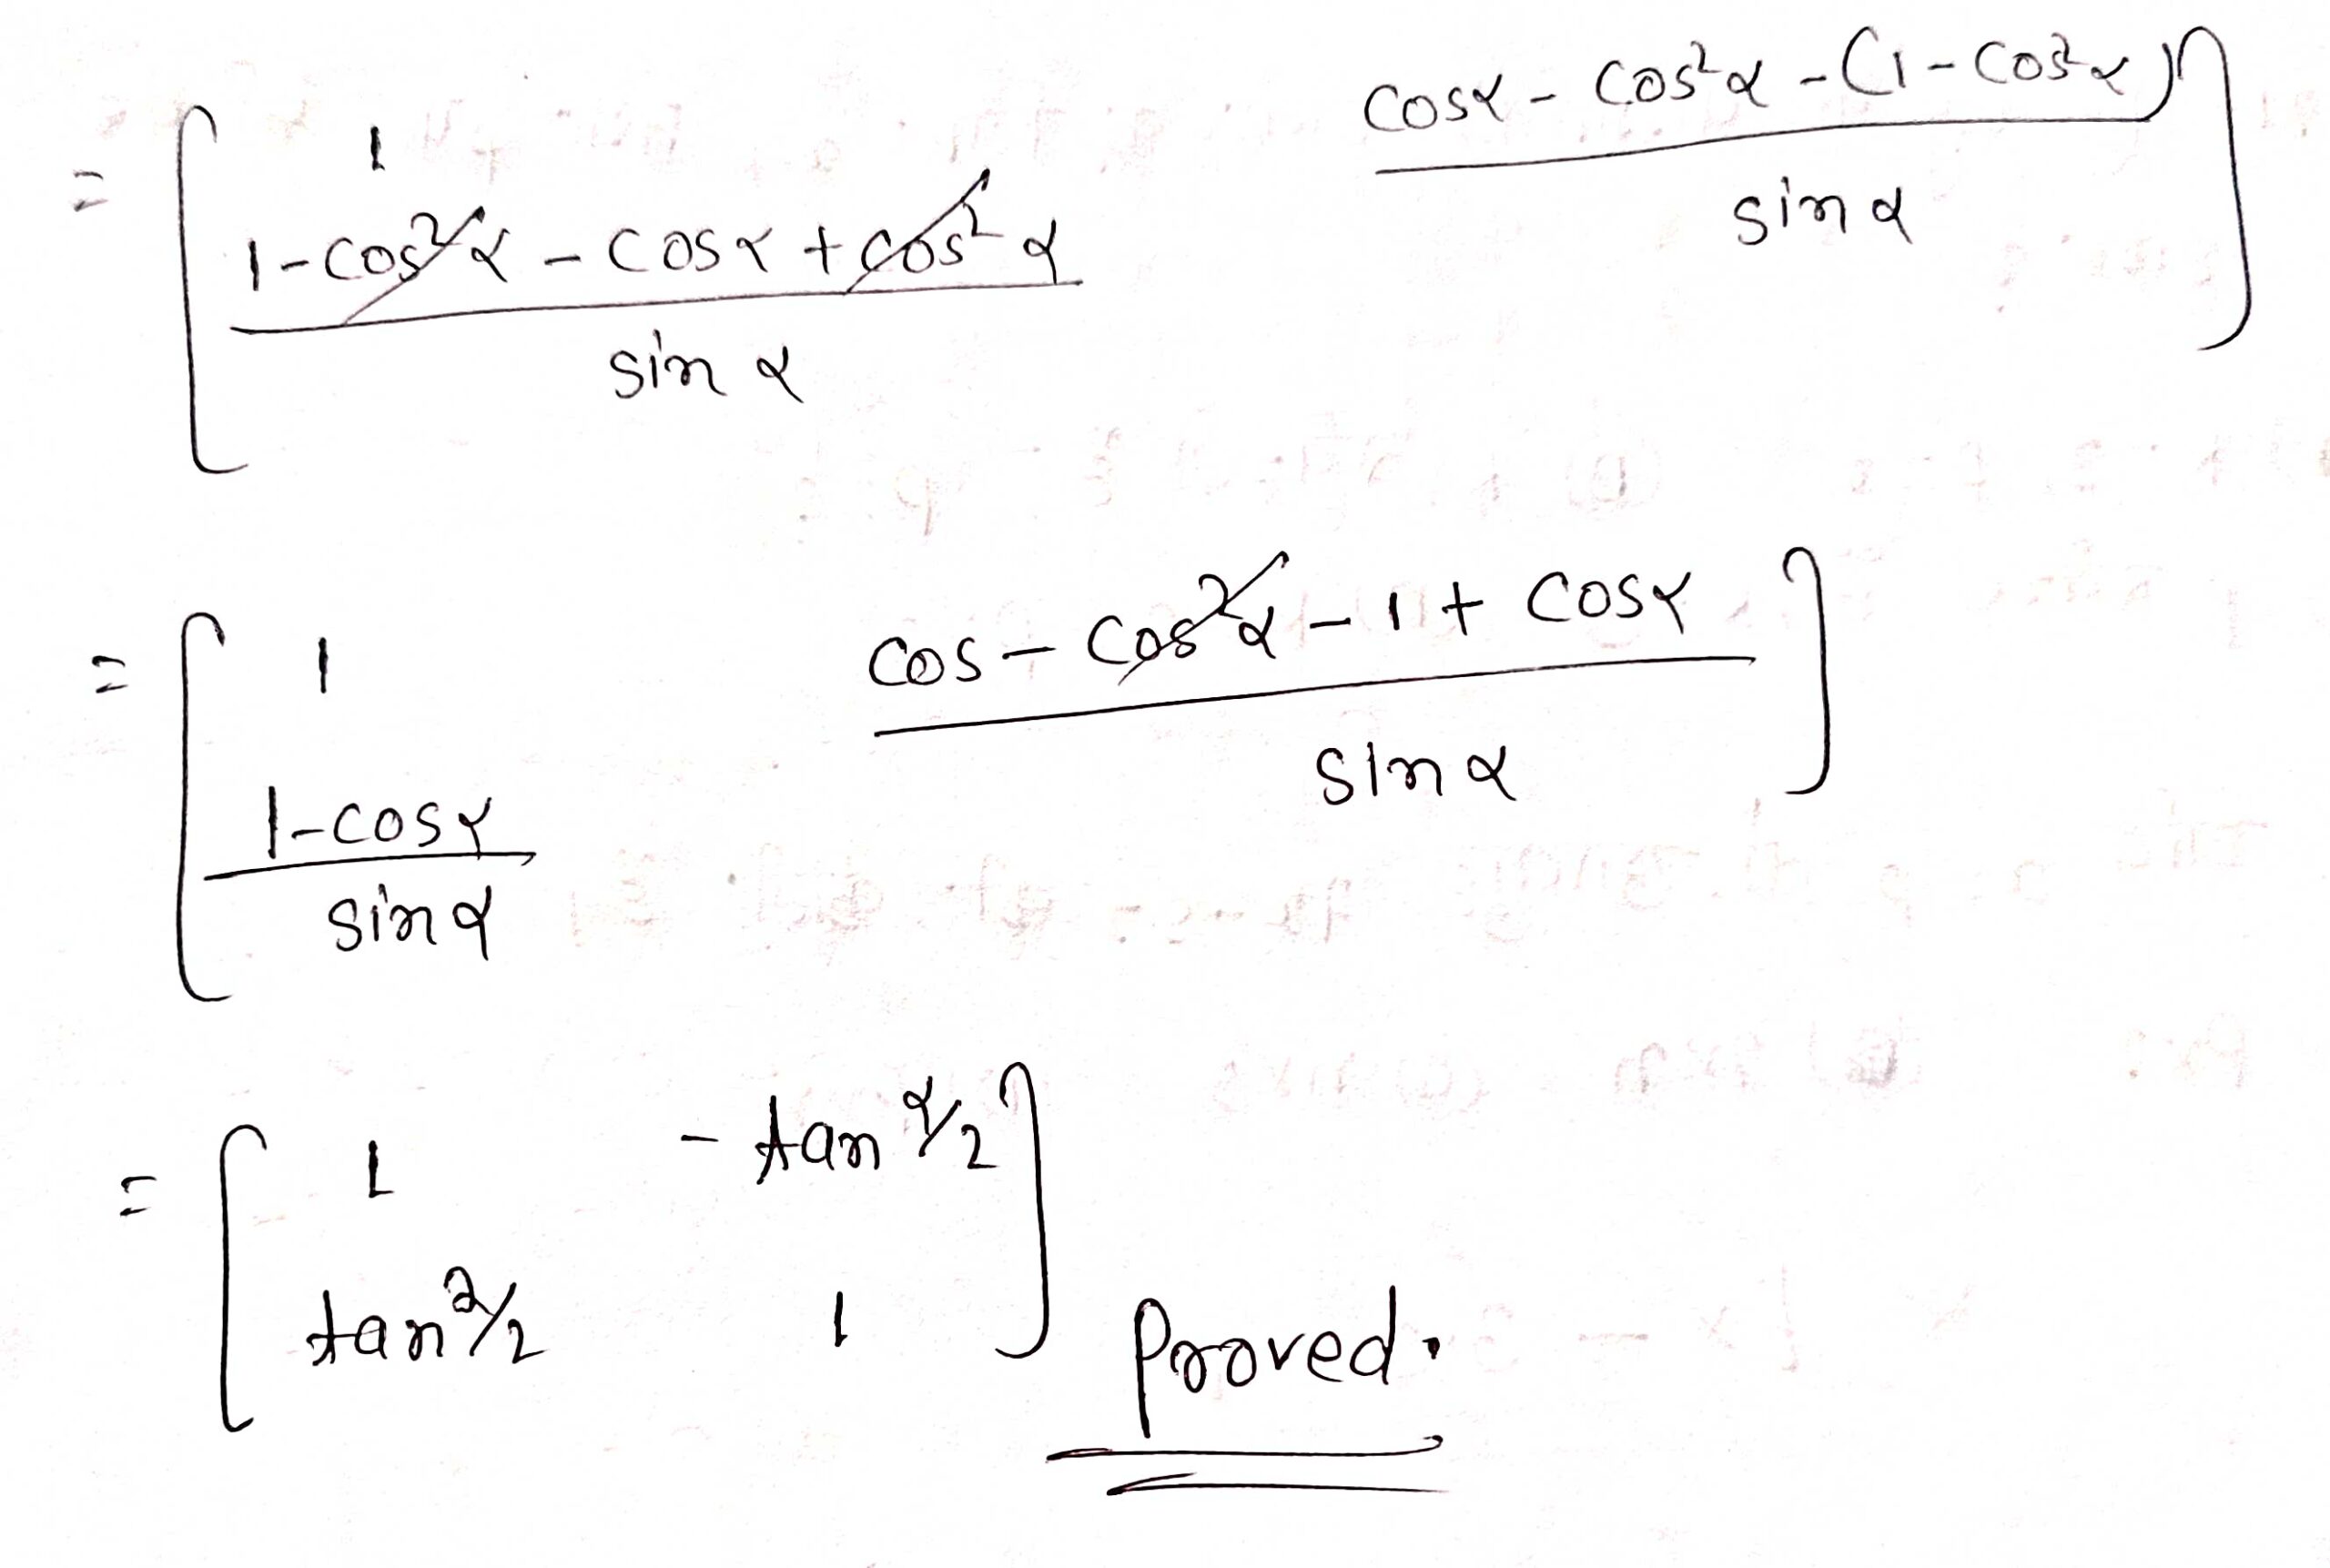 cosα - cos²α - (1 - cos²α)
= 1
sin α
1 - cos²α - cosα + cos²α
sin α
= 1 cos - cos²α - 1 + cosα
sin α
1 - cosα
sin α
= 1 - tan α/2
tan α/2 1 Proved.